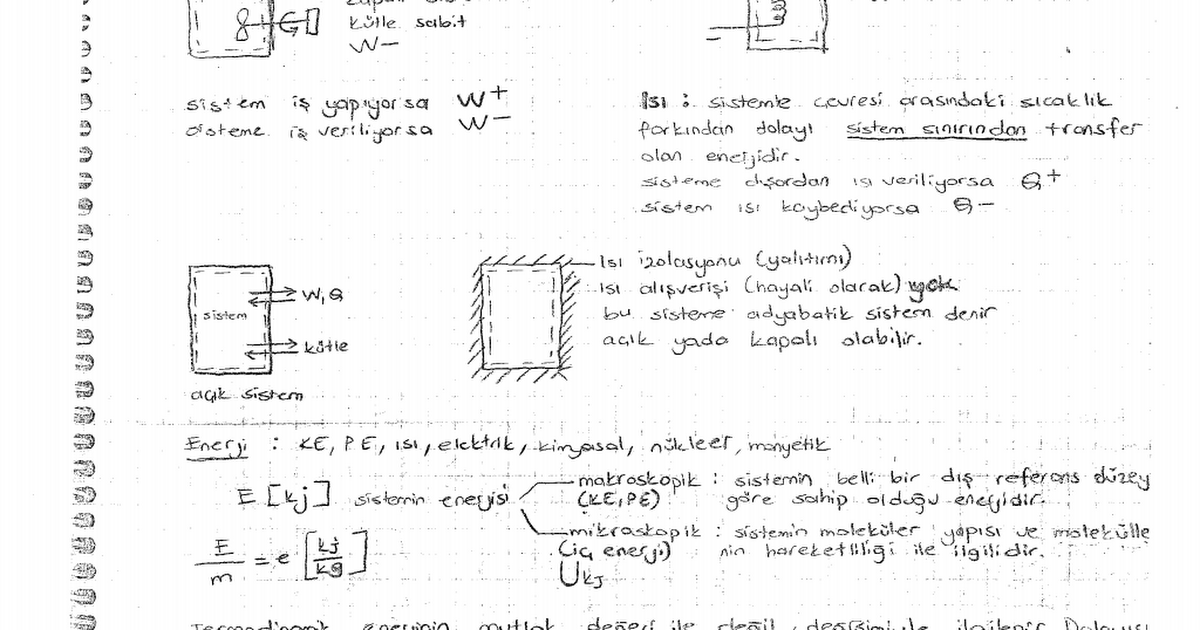 kütle sabit
W-
sistem iş yapıyorsa W+
sisteme iş veriliyorsa W-
Isı : sistemle çevresi arasındaki sıcaklık
farkından dolayı sistem sınırından transfer
olan enerjidir.
sisteme dışardan ısı veriliyorsa Q+
sistem ısı kaybediyorsa Q-
sistem
W,Q
kütle
açık sistem
Isı izolasyonu (yalıtımı)
ısı alışverişi (hayali olarak) yok
bu sisteme adyabatik sistem denir
açık yada kapalı olabilir.
Enerji : KE, PE, ısı, elektrik, kimyasal, nükleer, manyetik
E [kj] sistemin enerjisi
makroskopik : sistemin belli bir dış referans düzey
(KE, PE) göre sahip olduğu enerjidir.
mikroskopik : sistemin moleküler yapısı ve molekülle
(iç enerji) nin hareketliliği ile ilgilidir.
U kJ
E/m = e [kj/kg]
Termodinamik enerjinin mutlak değeri ile değil, değişimiyle ilgilenir. Dolayısı